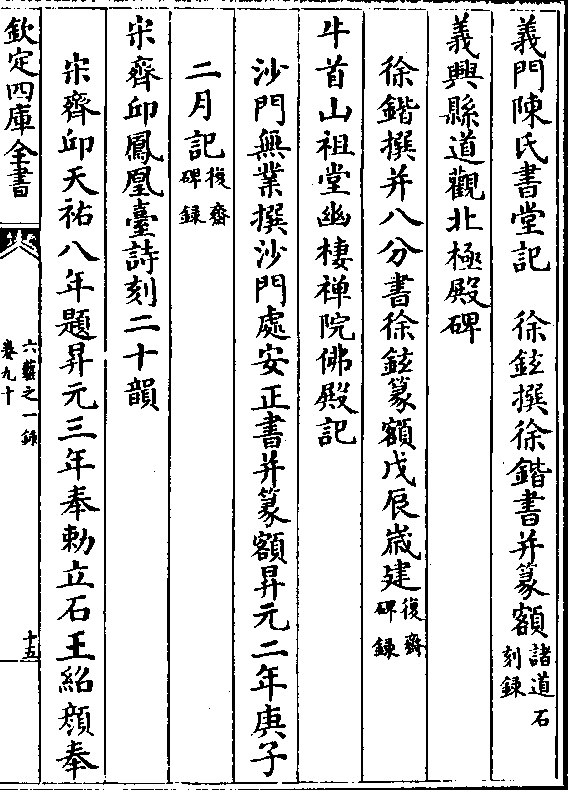 義門陳氏書堂記　徐鉉撰徐鍇書并篆額諸道石刻錄
義興縣道觀北極殿碑
徐鍇撰并八分書徐鉉篆額戊辰嵗建復齋碑錄
牛首山祖堂幽棲禪院佛殿記
沙門無業撰沙門處安正書并篆額昇元二年庚子
二月記復齋碑錄
宋齊邱鳳凰臺詩刻二十韻
宋齊邱天祐八年題昇元三年奉勅立石王紹顔奉
欽定四庫全書
六藝之一錄
卷九十
十五